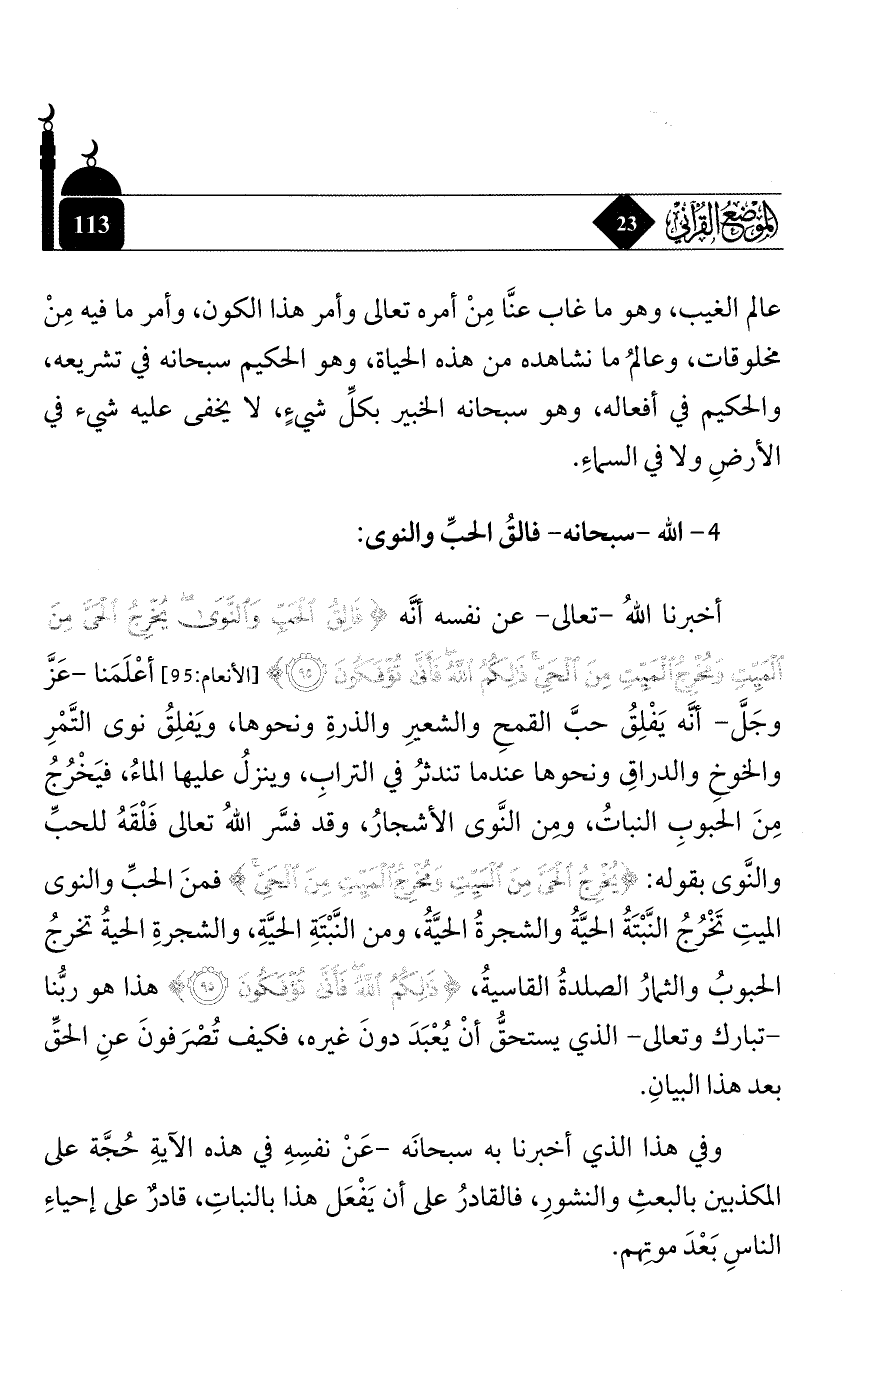 الموضع القرآني 23 113
عالم الغيب، وهو ما غاب عنَّا مِنْ أمره تعالى وأمر هذا الكون، وأمر ما فيه مِنْ
مخلوقات، وعالمُ ما نشاهده من هذه الحياة، وهو الحكيم سبحانه في تشريعه،
والحكيم في أفعاله، وهو سبحانه الخبير بكلِّ شيءٍ، لا يخفى عليه شيء في
الأرضِ ولا في السماءِ.
4- الله -سبحانه- فالقُ الحبِّ والنوى:
أخبرنا اللهُ -تعالى- عن نفسه أنَّه ﴿فَالِقُ ٱلْحَبِّ وَٱلنَّوَىٰۖ يُخْرِجُ ٱلْحَىَّ مِنَ
ٱلْمَيِّتِ وَمُخْرِجُ ٱلْمَيِّتِ مِنَ ٱلْحَىِّۚ ذَٰلِكُمُ ٱللَّهُۖ فَأَنَّىٰ تُؤْفَكُونَ ٩٥﴾ [الأنعام:95] أعْلَمَنا -عَزَّ
وجَلَّ- أنَّه يَفْلِقُ حبَّ القمحِ والشعيرِ والذرةِ ونحوها، ويَفلِقُ نوى التَّمْرِ
والخوخِ والدراقِ ونحوها عندما تندثرُ في الترابِ، وينزلُ عليها الماءُ، فيَخْرُجُ
مِنَ الحبوبِ النباتُ، ومِن النَّوى الأشجارُ، وقد فسَّر اللهُ تعالى فَلْقَهُ للحبِّ
والنَّوى بقوله: ﴿يُخْرِجُ ٱلْحَىَّ مِنَ ٱلْمَيِّتِ وَمُخْرِجُ ٱلْمَيِّتِ مِنَ ٱلْحَىِّۚ﴾ فمنَ الحبِّ والنوى
الميتِ تَخْرُجُ النَّبْتَةُ الحيَّةُ والشجرةُ الحيَّةُ، ومن النَّبْتَةِ الحيَّةِ، والشجرةِ الحيةُ تخرجُ
الحبوبُ والثمارُ الصلدةُ القاسيةُ، ﴿ذَٰلِكُمُ ٱللَّهُۖ فَأَنَّىٰ تُؤْفَكُونَ ٩٥﴾ هذا هو ربُّنا
-تبارك وتعالى- الذي يستحقُّ أنْ يُعْبَدَ دونَ غيره، فكيف تُصْرَفونَ عنِ الحقِّ
بعد هذا البيانِ.
وفي هذا الذي أخبرنا به سبحانَه -عَنْ نفسِهِ في هذه الآيةِ حُجَّة على
المكذبين بالبعثِ والنشورِ، فالقادرُ على أن يَفْعَل هذا بالنباتِ، قادرٌ على إحياءِ
الناسِ بَعْدَ موتِهم.